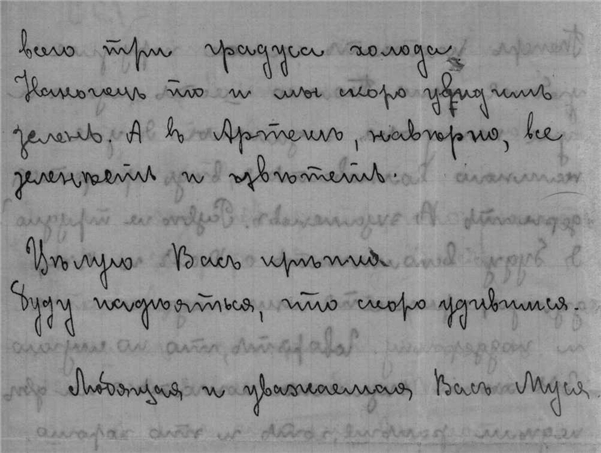 всего три градуса холода
Наконецъ то и мы скоро увидимъ
зелень. А въ Артекѣ, навѣрно, все
зеленѣетъ и цвѣтетъ.
Цѣлую Васъ крѣпко
Буду надѣяться, что скоро удивимся.
Любящая и уважаемая Васъ Муся.